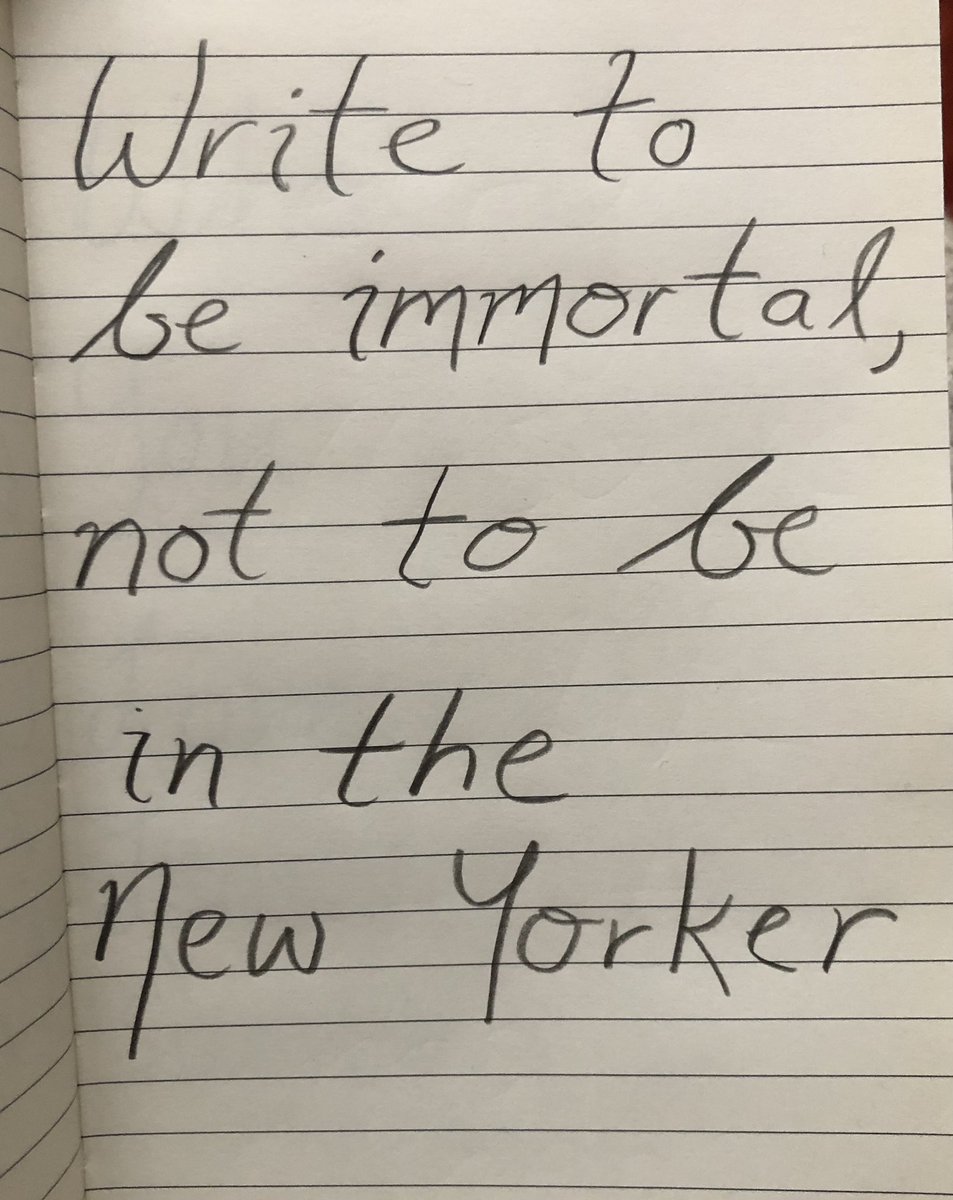 Write to
be immortal,
not to be
in the
New Yorker